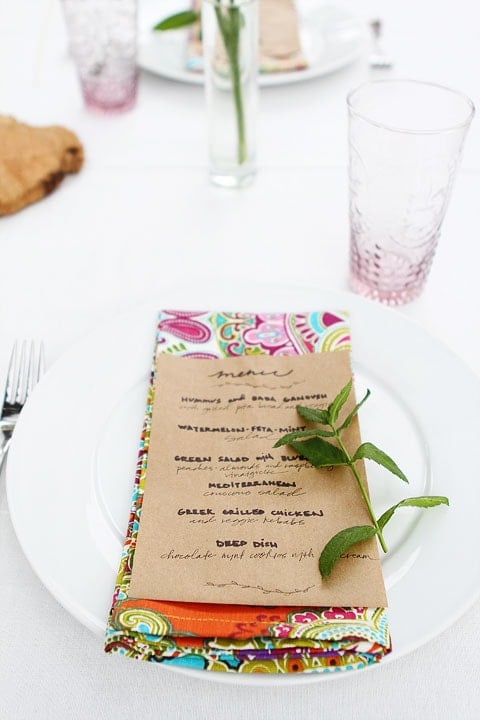 menu
HUMMUS and BABA GANOUSH
with grilled pita bread and
WATERMELON-FETA-MINT
Salad
GREEN SALAD with BLUE
peaches almonds and raspberry
vinaigrette
MEDITERRANEAN
couscous salad
GREEK GRILLED CHICKEN
and veggie kebabs
DEEP DISH
chocolate mint cookies with cream